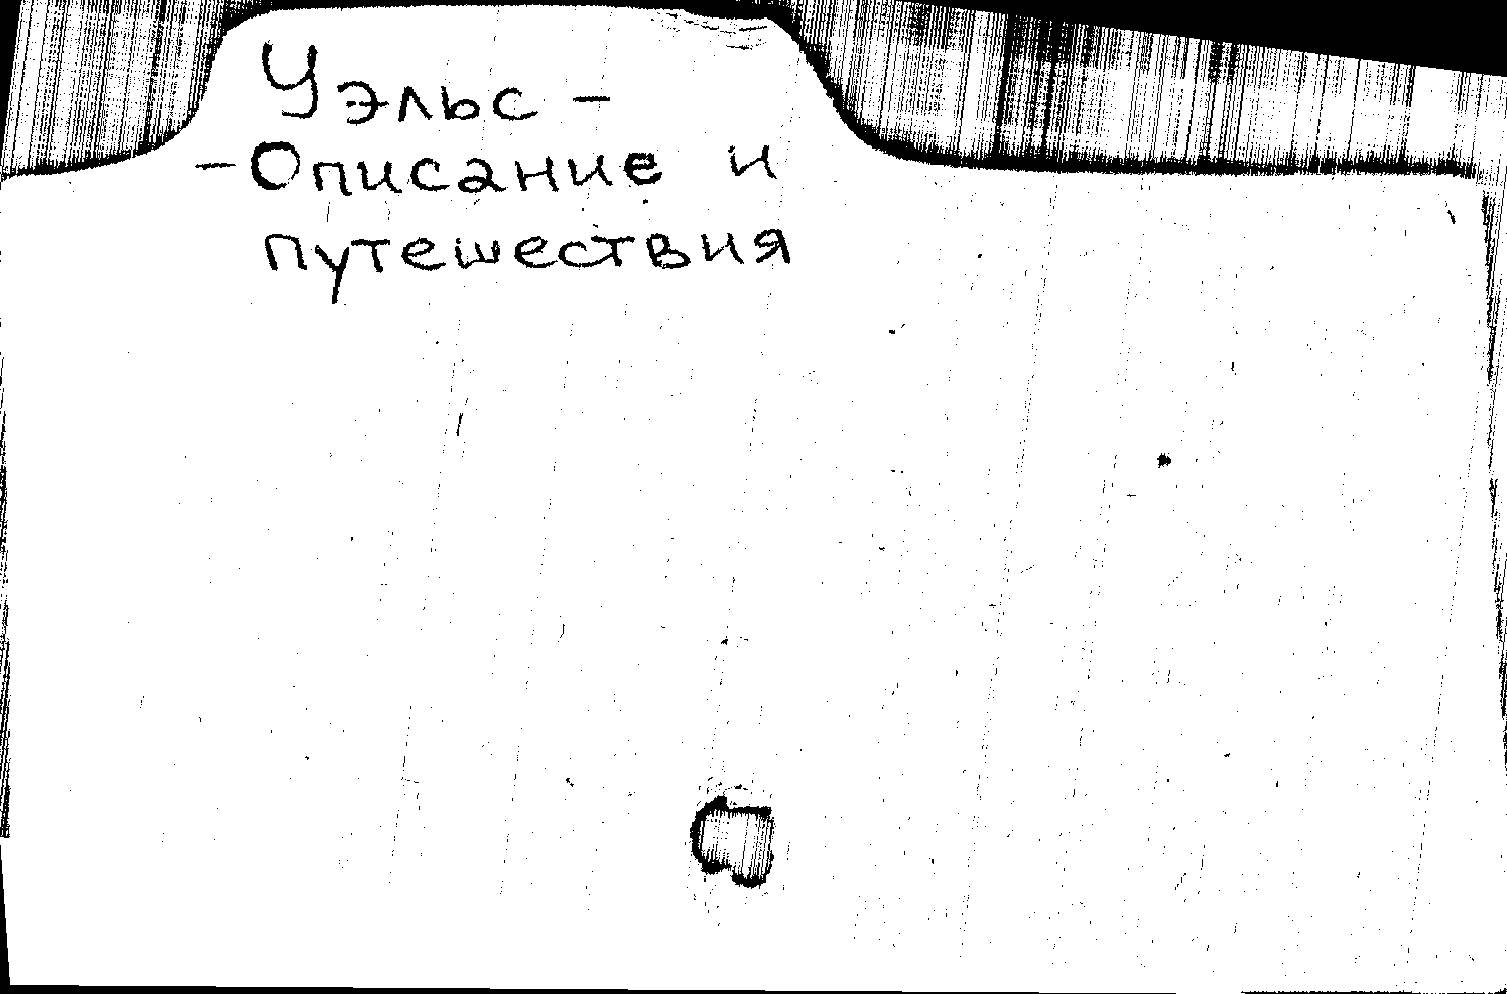 Уэльс -
- Описание и
путешествия